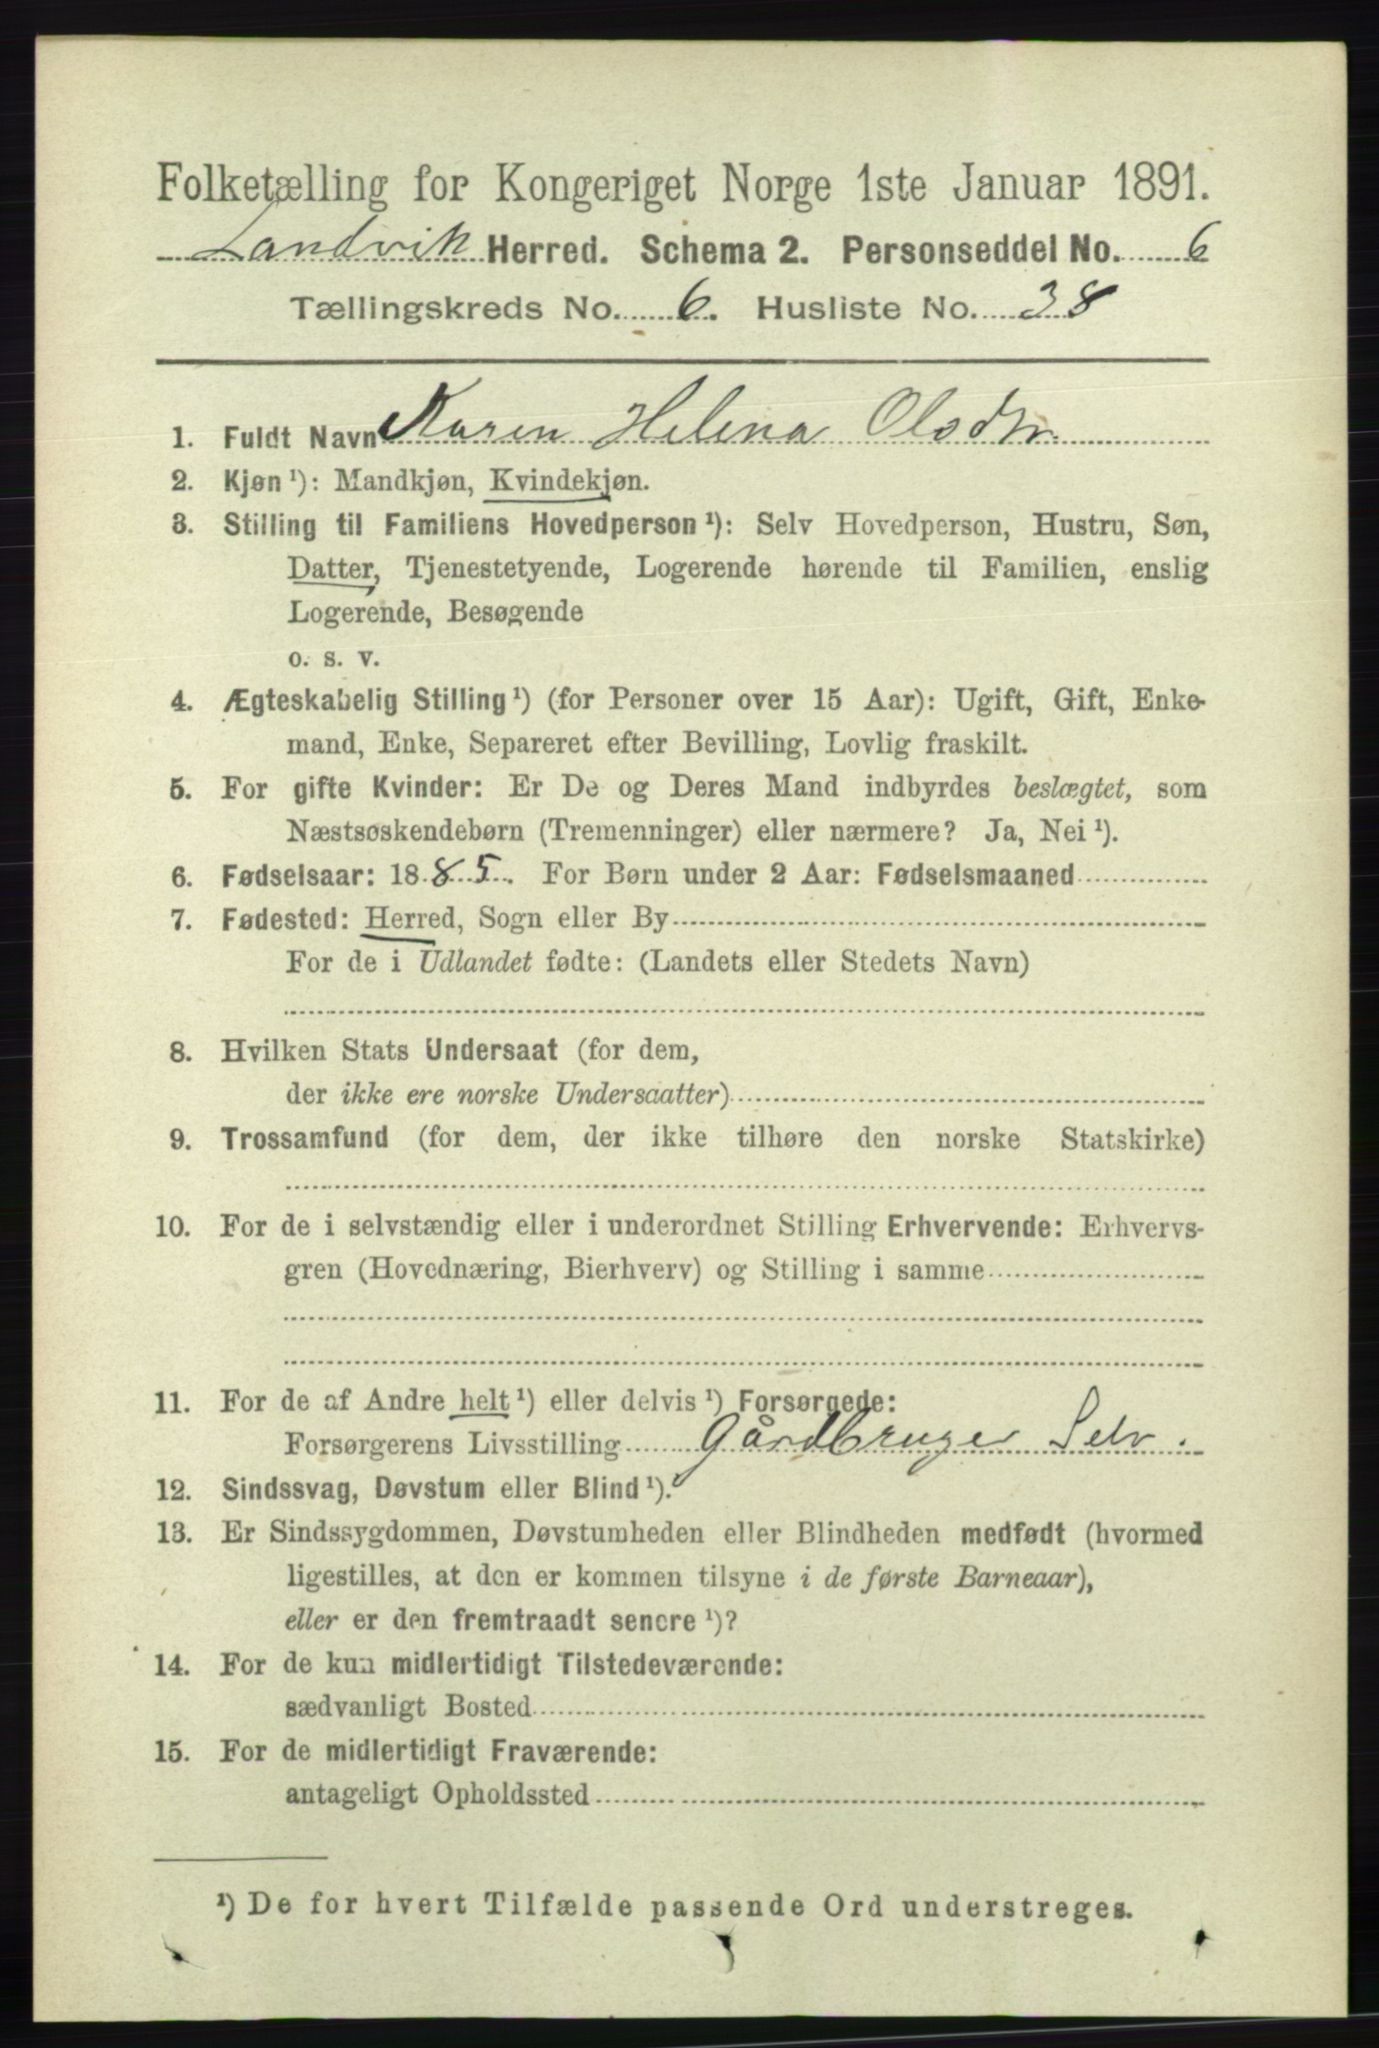 Folketælling for Kongeriget Norge 1ste Januar 1891.
Landvik Herred. Schema 2. Personseddel No. 6
Tællingskreds No. 6. Husliste No. 38
1. Fuldt Navn Karen Helena Olsdtr.
2. Kjøn ¹): Mandkjøn, Kvindekjøn.
3. Stilling til Familiens Hovedperson ¹): Selv Hovedperson, Hustru, Søn,
Datter, Tjenestetyende, Logerende hørende til Familien, enslig
Logerende, Besøgende
o. s. v.
4. Ægteskabelig Stilling ¹) (for Personer over 15 Aar): Ugift, Gift, Enke-
mand, Enke, Separeret efter Bevilling, Lovlig fraskilt.
5. For gifte Kvinder: Er De og Deres Mand indbyrdes beslægtet, som
Næstsøskendebørn (Tremenninger) eller nærmere? Ja, Nei ¹).
6. Fødselsaar: 1885. For Børn under 2 Aar: Fødselsmaaned
7. Fødested: Herred, Sogn eller By
For de i Udlandet fødte: (Landets eller Stedets Navn)
8. Hvilken Stats Undersaat (for dem,
der ikke ere norske Undersaatter)
9. Trossamfund (for dem, der ikke tilhøre den norske Statskirke)
10. For de i selvstændig eller i underordnet Stilling Erhvervende: Erhvervs-
gren (Hovednæring, Bierhverv) og Stilling i samme
11. For de af Andre helt ¹) eller delvis ¹) Forsørgede:
Forsørgerens Livsstilling Gårdbruger Selv.
12. Sindssvag, Døvstum eller Blind ¹).
13. Er Sindssygdommen, Døvstumheden eller Blindheden medfødt (hvormed
ligestilles, at den er kommen tilsyne i de første Barneaar),
eller er den fremtraadt senere ¹)?
14. For de kun midlertidigt Tilstedeværende:
sædvanligt Bosted
15. For de midlertidigt Fraværende:
antageligt Opholdssted
¹) De for hvert Tilfælde passende Ord understreges.